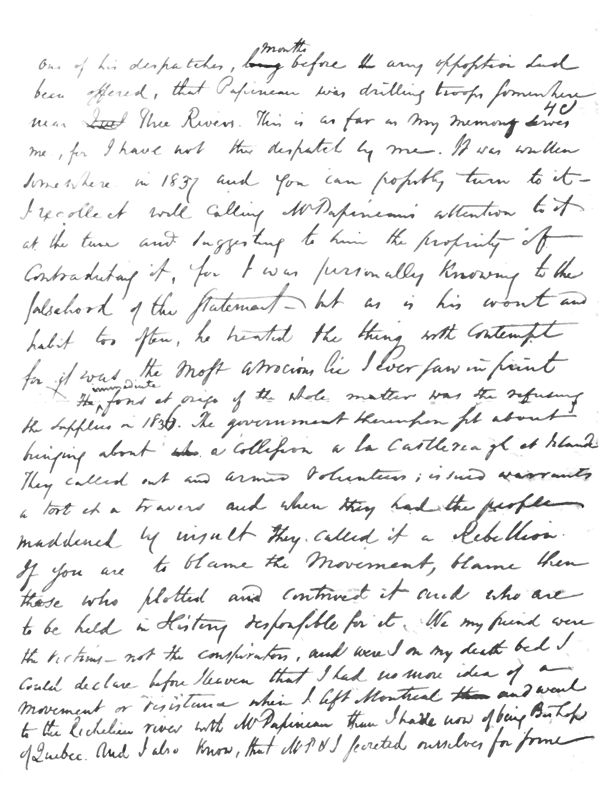 One of his despatches, months before any opposition had
been offered, that Papineau was drilling troops somewhere
near Three Rivers. This is as far as my memory serves
me, for I have not the despatch by me. It was written
somewhere in 1837 and you can possibly turn to it –
I recollect well calling Mr Papineau's attention to it
at the time and suggesting to him the propriety of
contradicting it, for I was personally knowing to the
falsehood of the statement – but as is his wont and
habit too often, he treated the thing with contempt
for it was the most atrocious lie I ever saw in print
The immediate fons et origo of the whole matter was the refusing
the supplies in 1836. The government thereupon set about
bringing about a collision a la Castlereagh et Island
They called out and armed Volunteers; issued warrants
a tort et a travers and when they had the people
maddened by insult they called it a Rebellion.
If you are to blame the Movement, blame then
those who plotted and contrived it and who are
to be held in History responsible for it. We my friend were
the victims – not the conspirators, and were I on my death bed I
could declare before Heaven that I had no more idea of a
movement or resistance when I left Montreal and went
to the Richelieu river with Mr Papineau than I have now of being Bishop
of Quebec. And I also know, that Mr P & I secreted ourselves for some